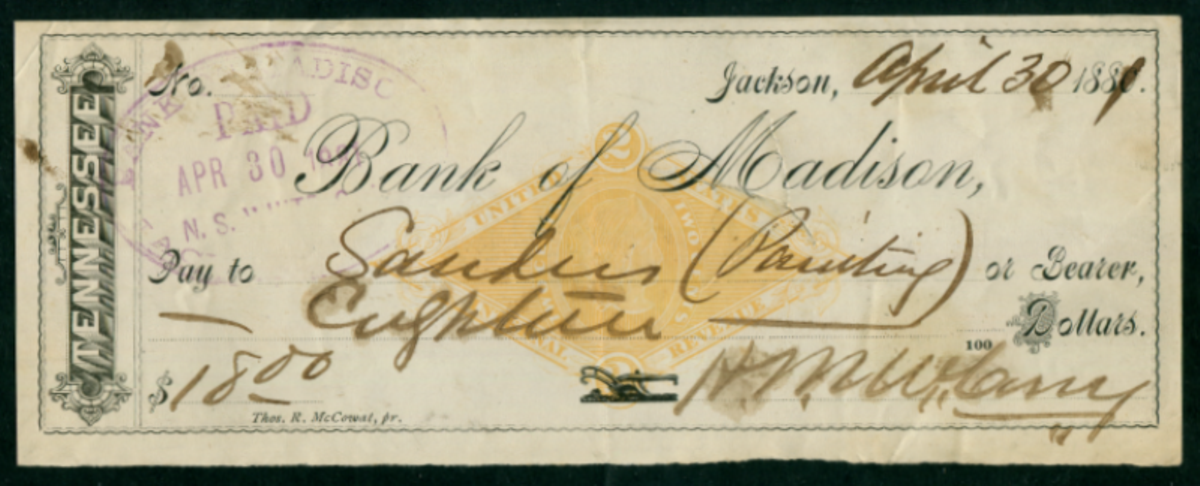 TENNESSEE
No.
Jackson, April 30 188
PAID
APR 30
N. S.
Bank of Madison,
UNITED STATES
TWO
INTERNAL REVENUE
2
2
Pay to Sanders (Painting) or Bearer,
— Eighteen — 100 Dollars.
$ 18 00
Thos. R. McCowat, pr.